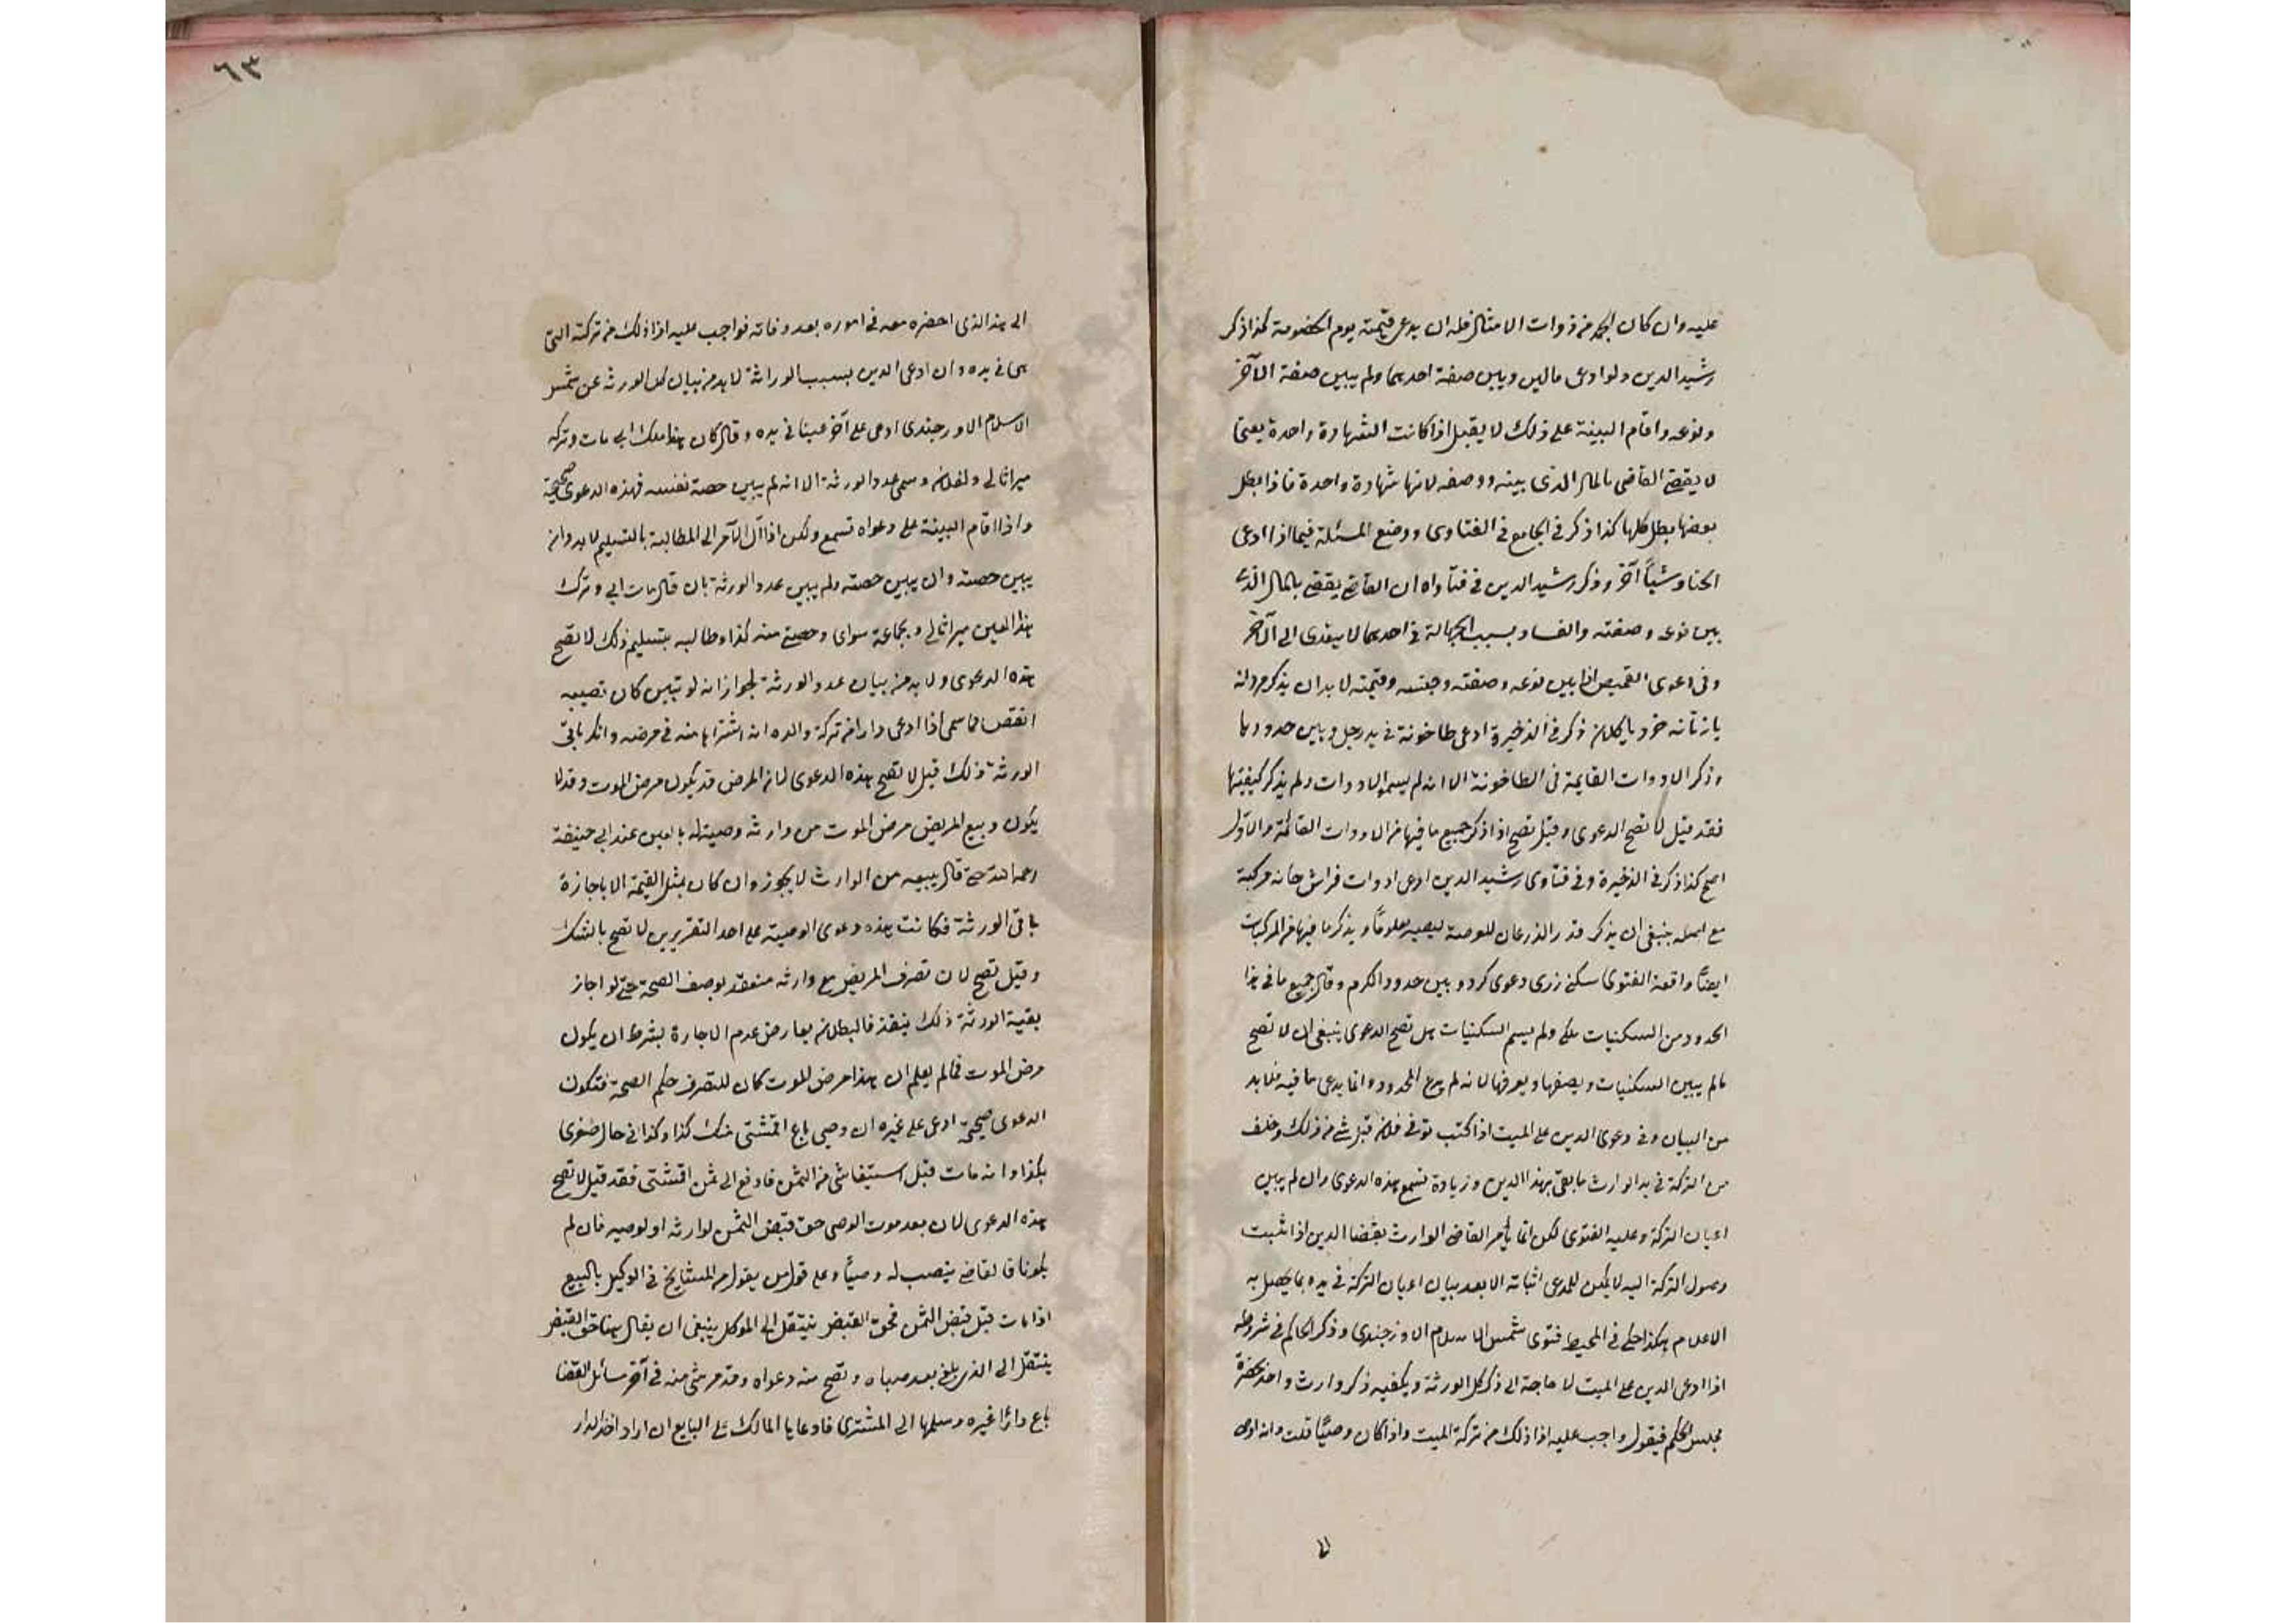 عليه وان كان الجمد من ذوات الامثال فله ان يدعي قيمته يوم الخصومة كذا ذكر
رشيد الدين ولو ادعى مالين وبين صفة احدهما ولم يبين صفة الآخر
ونوعه واقام البينة على ذلك لا يقبل اذا كانت الشهادة واحدة يعني
لا يقضي القاضي بالمال الذي بينه ووصفه لانها شهادة واحدة فاذا بطل
بعضها بطل كلها كذا ذكر في الجامع في الفتاوى ووضع المسئلة فيما اذا ادعى
الحنا وشيأ آخر وذكر رشيد الدين في فتاواه ان القاضي يقضي بالمال الذي
بين نوعه وصفته والفساد بسبب الجهالة في احدهما لا يتعدى الى الآخر
وفي دعوى القميص اذا بين نوعه وصفته وجنسه وقيمته لا بد ان يذكر مردانه
يا زنانه خرد يا كلان ذكر في الذخيرة ادعى طاحونة في يد رجل وبين حدودها
وذكر الادوات القايمة في الطاحونة الا انه لم يسم الادوات ولم يذكر كيفيتها
فقد قيل لا تصح الدعوى وقيل تصح اذا ذكر جميع ما فيها من الادوات القائمة والاول
اصح كذا ذكر في الذخيرة وفي فتاوى رشيد الدين ادعى ادوات فراش خانه مركبة
مع ينبغي ان يذكر قدر الذرعان للعرصة ليصير معلوما ويذكر ما فيها من المركبات
ايضا واقعة الفتوى سكني رزى دعوى كرد وبين حدود الكرم وقال جميع ما في هذا
الحدود من السكنيات ملكي ولم يسم السكنيات هل تصح الدعوى ينبغي ان لا تصح
مالم يبين السكنيات ويصفها ويعرفها لانه لم يدع المحدود وانما يدعي ما فيه فلا بد
من البيان وفي دعوى الدين على الميت اذا كتب توفي فلان قبل شي من ذلك وخلف
من التركة في يد الوارث ما يفي بهذا الدين وزيادة تسمع هذه الدعوى وان لم يبين
اعيان التركة وعليه الفتوى لكن انما يأمر القاضي الوارث بقضا الدين اذا ثبت
وصول التركة اليه لا يمكن للمدعي اثباته الا بعد بيان اعيان التركة في يده بما يحصل به
الاعلام هكذا حكي في المحيط فتوى شمس الاسلام الاوزجندي وذكر الحاكم في شروطه
اذا ادعى الدين على الميت لا حاجة الى ذكر كل الورثة ويكفيه ذكر وارث واحد بحضرة
مجلس الحكم فيقول واجب عليه اذا ذلك من تركة الميت واذا كان وصيا قلت وانه اوصى
٦٣
الى هذا الذي احضره معه في اموره بعد وفاته فواجب عليه اذا ذلك من تركته التي
هي في يده وان ادعى الدين بسبب الوراثة لا بد من بيان كل الورثة عن شمس
الاسلام الاورجندي ادعى على آخر عينا في يده وقال كان هذا ملك ابي مات وتركه
ميراثا لي ولفلان وسمى عدد الورثة الا انه لم يبين حصة نفسه فهذه الدعوى صحيحة
واذا اقام البينة على دعواه تسمع ولكن اذا آل الامر الى المطالبة بالتسليم لا بد وان
يبين حصته وان يبين حصته ولم يبين عدد الورثة بان قال مات ابي وترك
هذا العين ميراثا لي ولجماعة سواي وحصتي منه كذا وطالبه بتسليم ذلك لا تصح
هذه الدعوى ولا بد من بيان عدد الورثة لجواز انه لو تبين كان نصيبه
انقص مما سمى اذا ادعى دارا من تركة والده انه اشتراها منه في مرضه وانكر باقي
الورثة ذلك قيل لا تصح هذه الدعوى لان المرض قد يكون مرض الموت وقد لا
يكون وبيع المريض مرض الموت من وارثه وصية له بالعين عند ابي حنيفة
رحمه الله حتى قال بيعه من الوارث لا يجوز وان كان بمثل القيمة الا باجازة
باقي الورثة فكانت هذه دعوى الوصية على احد التقديرين لا تصح بالشك
وقيل تصح لان تصرف المريض مع وارثه منعقد بوصف الصحة حتى لو اجاز
بقية الورثة ذلك ينفذ فالبطلان يعارض عدم الاجازة بشرط ان يكون
مرض الموت فمالم يعلم ان هذا مرض الموت كان للتصرف حكم الصحة فتكون
الدعوى صحيحة ادعى على غيره ان وصيي باع اقمشتي منك كذا وكذا في حال صغري
بكذا وانه مات قبل استيفا شي من الثمن فادفع الى ثمن اقمشتي فقد قيل لا تصح
هذه الدعوى لان بعد موت الوصي حق قبض الثمن لوارثه او لوصيه فان لم
يكونا فالقاضي ينصب له وصيا وعلى قول من يقول من المشايخ في الوكيل بالبيع
اذا مات قبل قبض الثمن فحق القبض ينتقل الى الموكل ينبغي ان يقال هنا حق القبض
ينتقل الى الذي بلغ بعد صباه وتصح منه دعواه وقد مر شي منه في آخر مسائل القضا
باع دارا غيره وسلمها الى المشتري فادعاها المالك على البايع ان اراد اخذ الدار